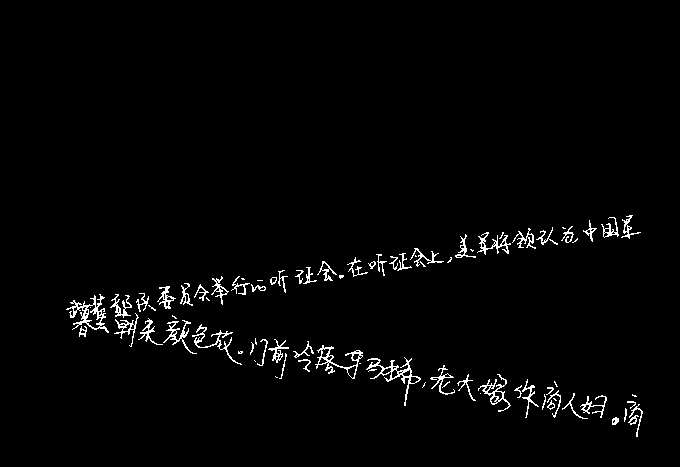 部队委员会举行的听证会。在听证会上,美军将领认为中国军
朝来颜色故。门前冷落车马稀,老大嫁作商人妇。商